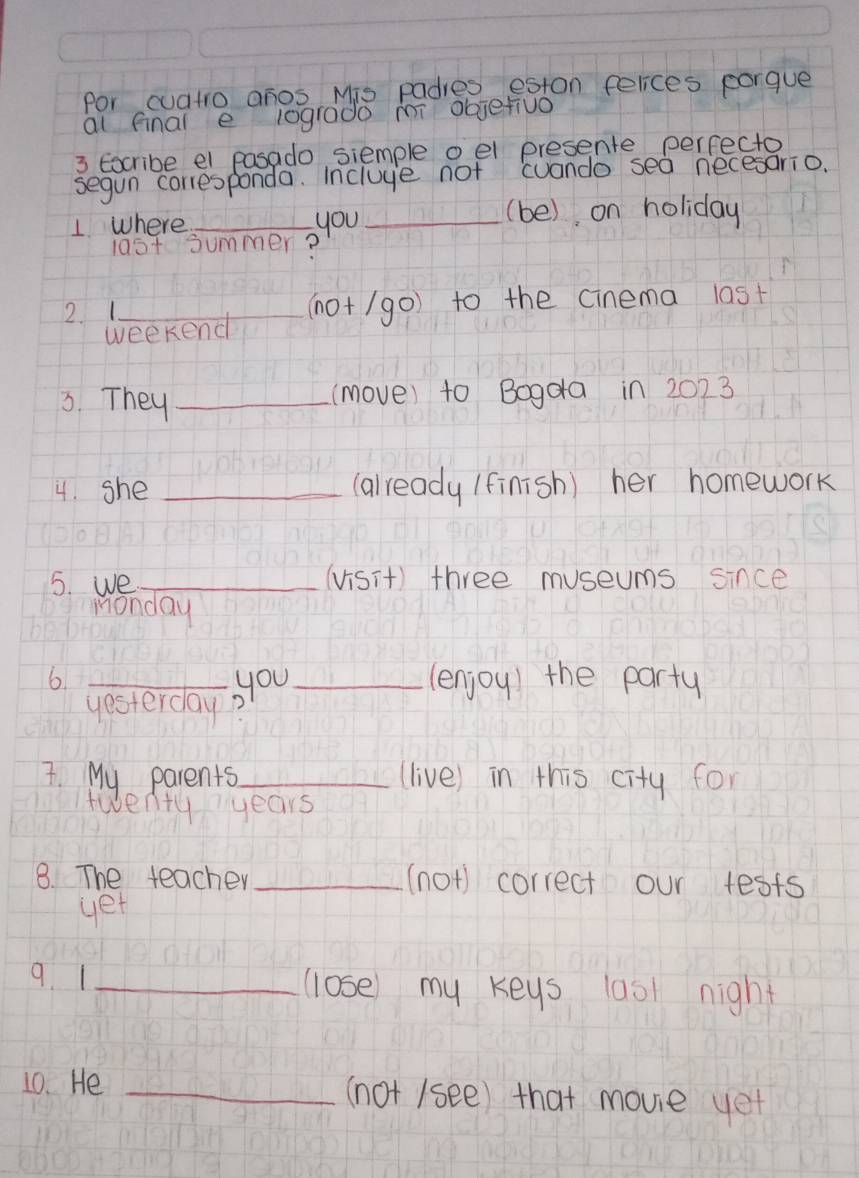 Por cuatro años Mis padres estan felices porque
al final e logrado mi objetivo
3 Escribe el pasado siemple o el presente perfecto
segun corresponda. Incluye not cuando sea necesario.
1. Where ______ you ______ (be), on holiday
last summer?
2. I ______ (not/go) to the cinema last
weekend
3. They ______ (move) to Bogota in 2023
4. She ______ (already/finish) her homework
5. We ______ (visit) three museums since
monday
6. ______ you ______ (enjoy) the party
yesterday?
7. My parents ______ (live) in this city for
twenty years
8. The teacher ______ (not) correct our tests
yet
9. I ______ (lose) my keys last night
10. He ______ (not/see) that movie yet